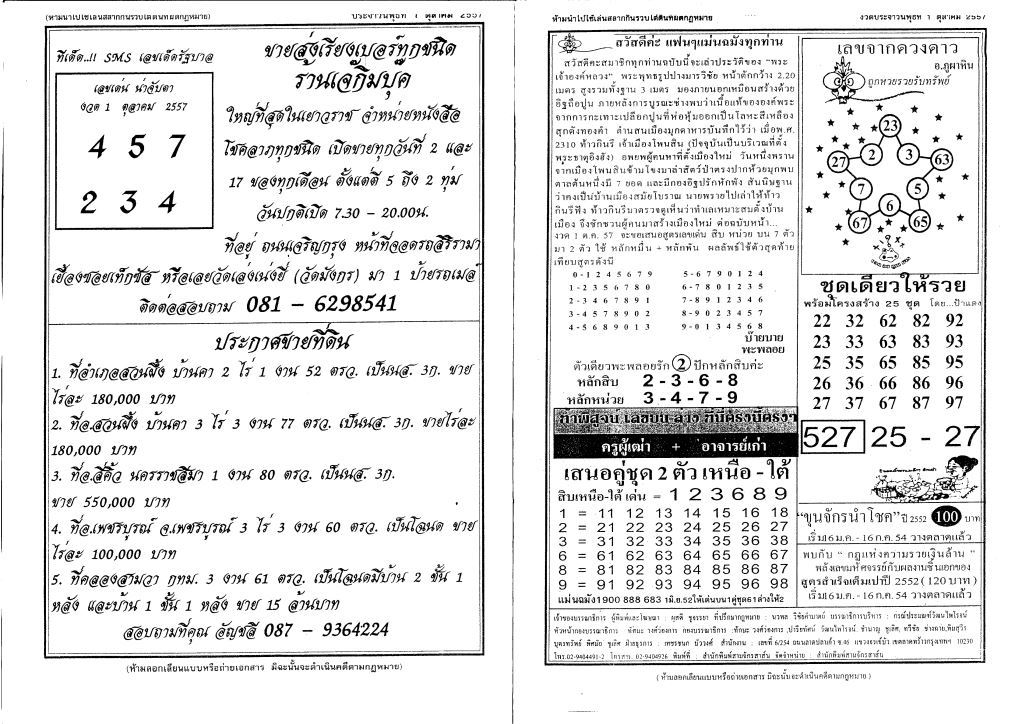 (ห้ามนำไปใช้เล่นสลากกินรวบได้ผิดกฎหมาย)
ประจำวันพุธที่ 1 ตุลาคม 2557
ทีเด็ด..!! SMS เลขเด็ดรัฐบาล
เลขเด่น น่าจับตา
งวด 1 ตุลาคม 2557
4 5 7
2 3 4
ขายส่งเรียงเบอร์ทุกชนิด
ร้านเจ๊กิมบุ๊ค
ใหญ่ที่สุดในเยาวราช จำหน่ายหนังสือ
โชคลาภทุกชนิด เปิดขายทุกวันที่ 2 และ
17 ของทุกเดือน ตั้งแต่ตี 5 ถึง 2 ทุ่ม
วันปกติเปิด 7.30 - 20.00น.
ที่อยู่ ถนนเจริญกรุง หน้าที่จอดรถสิริรามา
เยื้องซอยเท็กซัส หรือเลยวัดเล่งเน่งยี่ (วัดมังกร) มา 1 ป้ายรถเมล์
ติดต่อสอบถาม 081 - 6298541
ประกาศขายที่ดิน
1. ที่อำเภอสวนผึ้ง บ้านคา 2 ไร่ 1 งาน 52 ตรว. เป็นนส. 3ก. ขาย
ไร่ละ 180,000 บาท
2. ที่อ.สวนผึ้ง บ้านคา 3 ไร่ 3 งาน 77 ตรว. เป็นนส. 3ก. ขายไร่ละ
180,000 บาท
3. ที่อ.สีคิ้ว นครราชสีมา 1 งาน 80 ตรว. เป็นนส. 3ก.
ขาย 550,000 บาท
4. ที่อ.เพชรบูรณ์ จ.เพชรบูรณ์ 3 ไร่ 3 งาน 60 ตรว. เป็นโฉนด ขาย
ไร่ละ 100,000 บาท
5. ที่คลองสามวา กทม. 3 งาน 61 ตรว. เป็นโฉนดมีบ้าน 2 ชั้น 1
หลัง และบ้าน 1 ชั้น 1 หลัง ขาย 15 ล้านบาท
สอบถามที่คุณ อัญชลี 087 - 9364224
(ห้ามลอกเลียนแบบหรือถ่ายเอกสาร มิฉะนั้นจะดำเนินคดีตามกฎหมาย)
ห้ามนำไปใช้เล่นสลากกินรวบได้ผิดกฎหมาย
งวดประจำวันพุธที่ 1 ตุลาคม 2557
สวัสดีค่ะ แฟนๆแม่นฉมังทุกท่าน
สวัสดีค่ะสมาชิกทุกท่านฉบับนี้จะเล่าประวัติของ "พระ
เจ้าองค์หลวง" พระพุทธรูปปางมารวิชัย หน้าตักกว้าง 2.20
เมตร สูงรวมทั้งฐาน 3 เมตร มองภายนอกเหมือนสร้างด้วย
อิฐถือปูน ภายหลังการบูรณะช่างพบว่าเนื้อแท้ขององค์พระ
จากการกะเทาะเปลือกปูนที่ห่อหุ้มออกเป็นโลหะสีเหลือง
สุกดั่งทองคำ ตำนานเมืองมุกดาหารบันทึกไว้ว่า เมื่อพ.ศ.
2310 ท้าวกินรี เจ้าเมืองโพนสิน (ปัจจุบันเป็นบริเวณที่ตั้ง
พระธาตุอิงฮัง) อพยพผู้คนหาที่ตั้งเมืองใหม่ วันหนึ่งพราน
จากเมืองโพนสินข้ามโขงมาล่าสัตว์ป่าตรงปากห้วยมุกพบ
ตาลต้นหนึ่งมี 7 ยอด และมีกองอิฐปรักหักพัง สันนิษฐาน
ว่าคงเป็นบ้านเมืองสมัยโบราณ นายพรานไปเล่าให้ท้าว
กินรีฟัง ท้าวกินรีมาตรวจดูเห็นว่าทำเลเหมาะสมตั้งบ้าน
เมือง จึงชักชวนผู้คนมาสร้างเมืองใหม่ ต่อฉบับหน้า...
งวด 1 ต.ค. 57 จะขอเสนอสูตรเลขเด่น สิบ หน่วย บน 7 ตัว
มา 2 ตัว ใช้ หลักหมื่น + หลักพัน ผลลัพธ์ใช้ตัวสุดท้าย
เทียบสูตรดังนี้
0-0 1 2 4 5 6 7 9 5-6 7 9 0 1 2 4
1-2 3 5 6 7 8 0 6-7 8 0 1 2 3 5
2-3 4 6 7 8 9 1 7-8 9 1 2 3 4 6
3-4 5 7 8 9 0 2 8-9 0 2 3 4 5 7
4-5 6 8 9 0 1 3 9-0 1 3 4 5 6 8
บ๊ายบาย
พะพลอย
ตัวเดียวพะพลอยรัก 2 ปักหลักสิบค่ะ
หลักสิบ 2 - 3 - 6 - 8
หลักหน่วย 3 - 4 - 7 - 9
ท้าพิสูจน์ เลขบน-ล่าง ที่นี่ตรงนี้ตรงๆ
ครูผู้เฒ่า + อาจารย์เก่า
เสนอคู่ชุด 2 ตัว เหนือ - ใต้
สิบเหนือ-ใต้ เด่น = 1 2 3 6 8 9
1 = 11 12 13 14 15 16 18
2 = 21 22 23 24 25 26 27
3 = 31 32 33 34 35 36 38
6 = 61 62 63 64 65 66 67
8 = 81 82 83 84 85 86 87
9 = 91 92 93 94 95 96 98
แม่นฉมัง1900 888 683 1มิ.ย.52ให้เด่นบน4คู่ชุด61ล่างให้2
เลขจากดวงดาว
อ.ภูผาหิน
ถูกหวยรวยรับทรัพย์
23
27 2 3 63
7 5
6
67 65
ชุดเดียวให้รวย
พร้อมโครงสร้าง 25 ชุด โดย...ป้าแดง
22 32 62 82 92
23 33 63 83 93
25 35 65 85 95
26 36 66 86 96
27 37 67 87 97
527 25 - 27
"ขุนจักรนำโชค" ปี 2552 100 บาท
เริ่ม16 ม.ค. - 16 ก.ค. 54 วางตลาดแล้ว
พบกับ " กฎแห่งความรวยเงินล้าน "
พลังเลขมหัศจรรย์กับผลงานชิ้นเอกของ
สูตรสำเร็จเดิมเปาปี 2552 ( 120 บาท )
เริ่ม16 ม.ค. - 16 ก.ค. 54 วางตลาดแล้ว
( ห้ามลอกเลียนแบบหรือถ่ายเอกสาร มิฉะนั้นจะดำเนินคดีตามกฎหมาย )